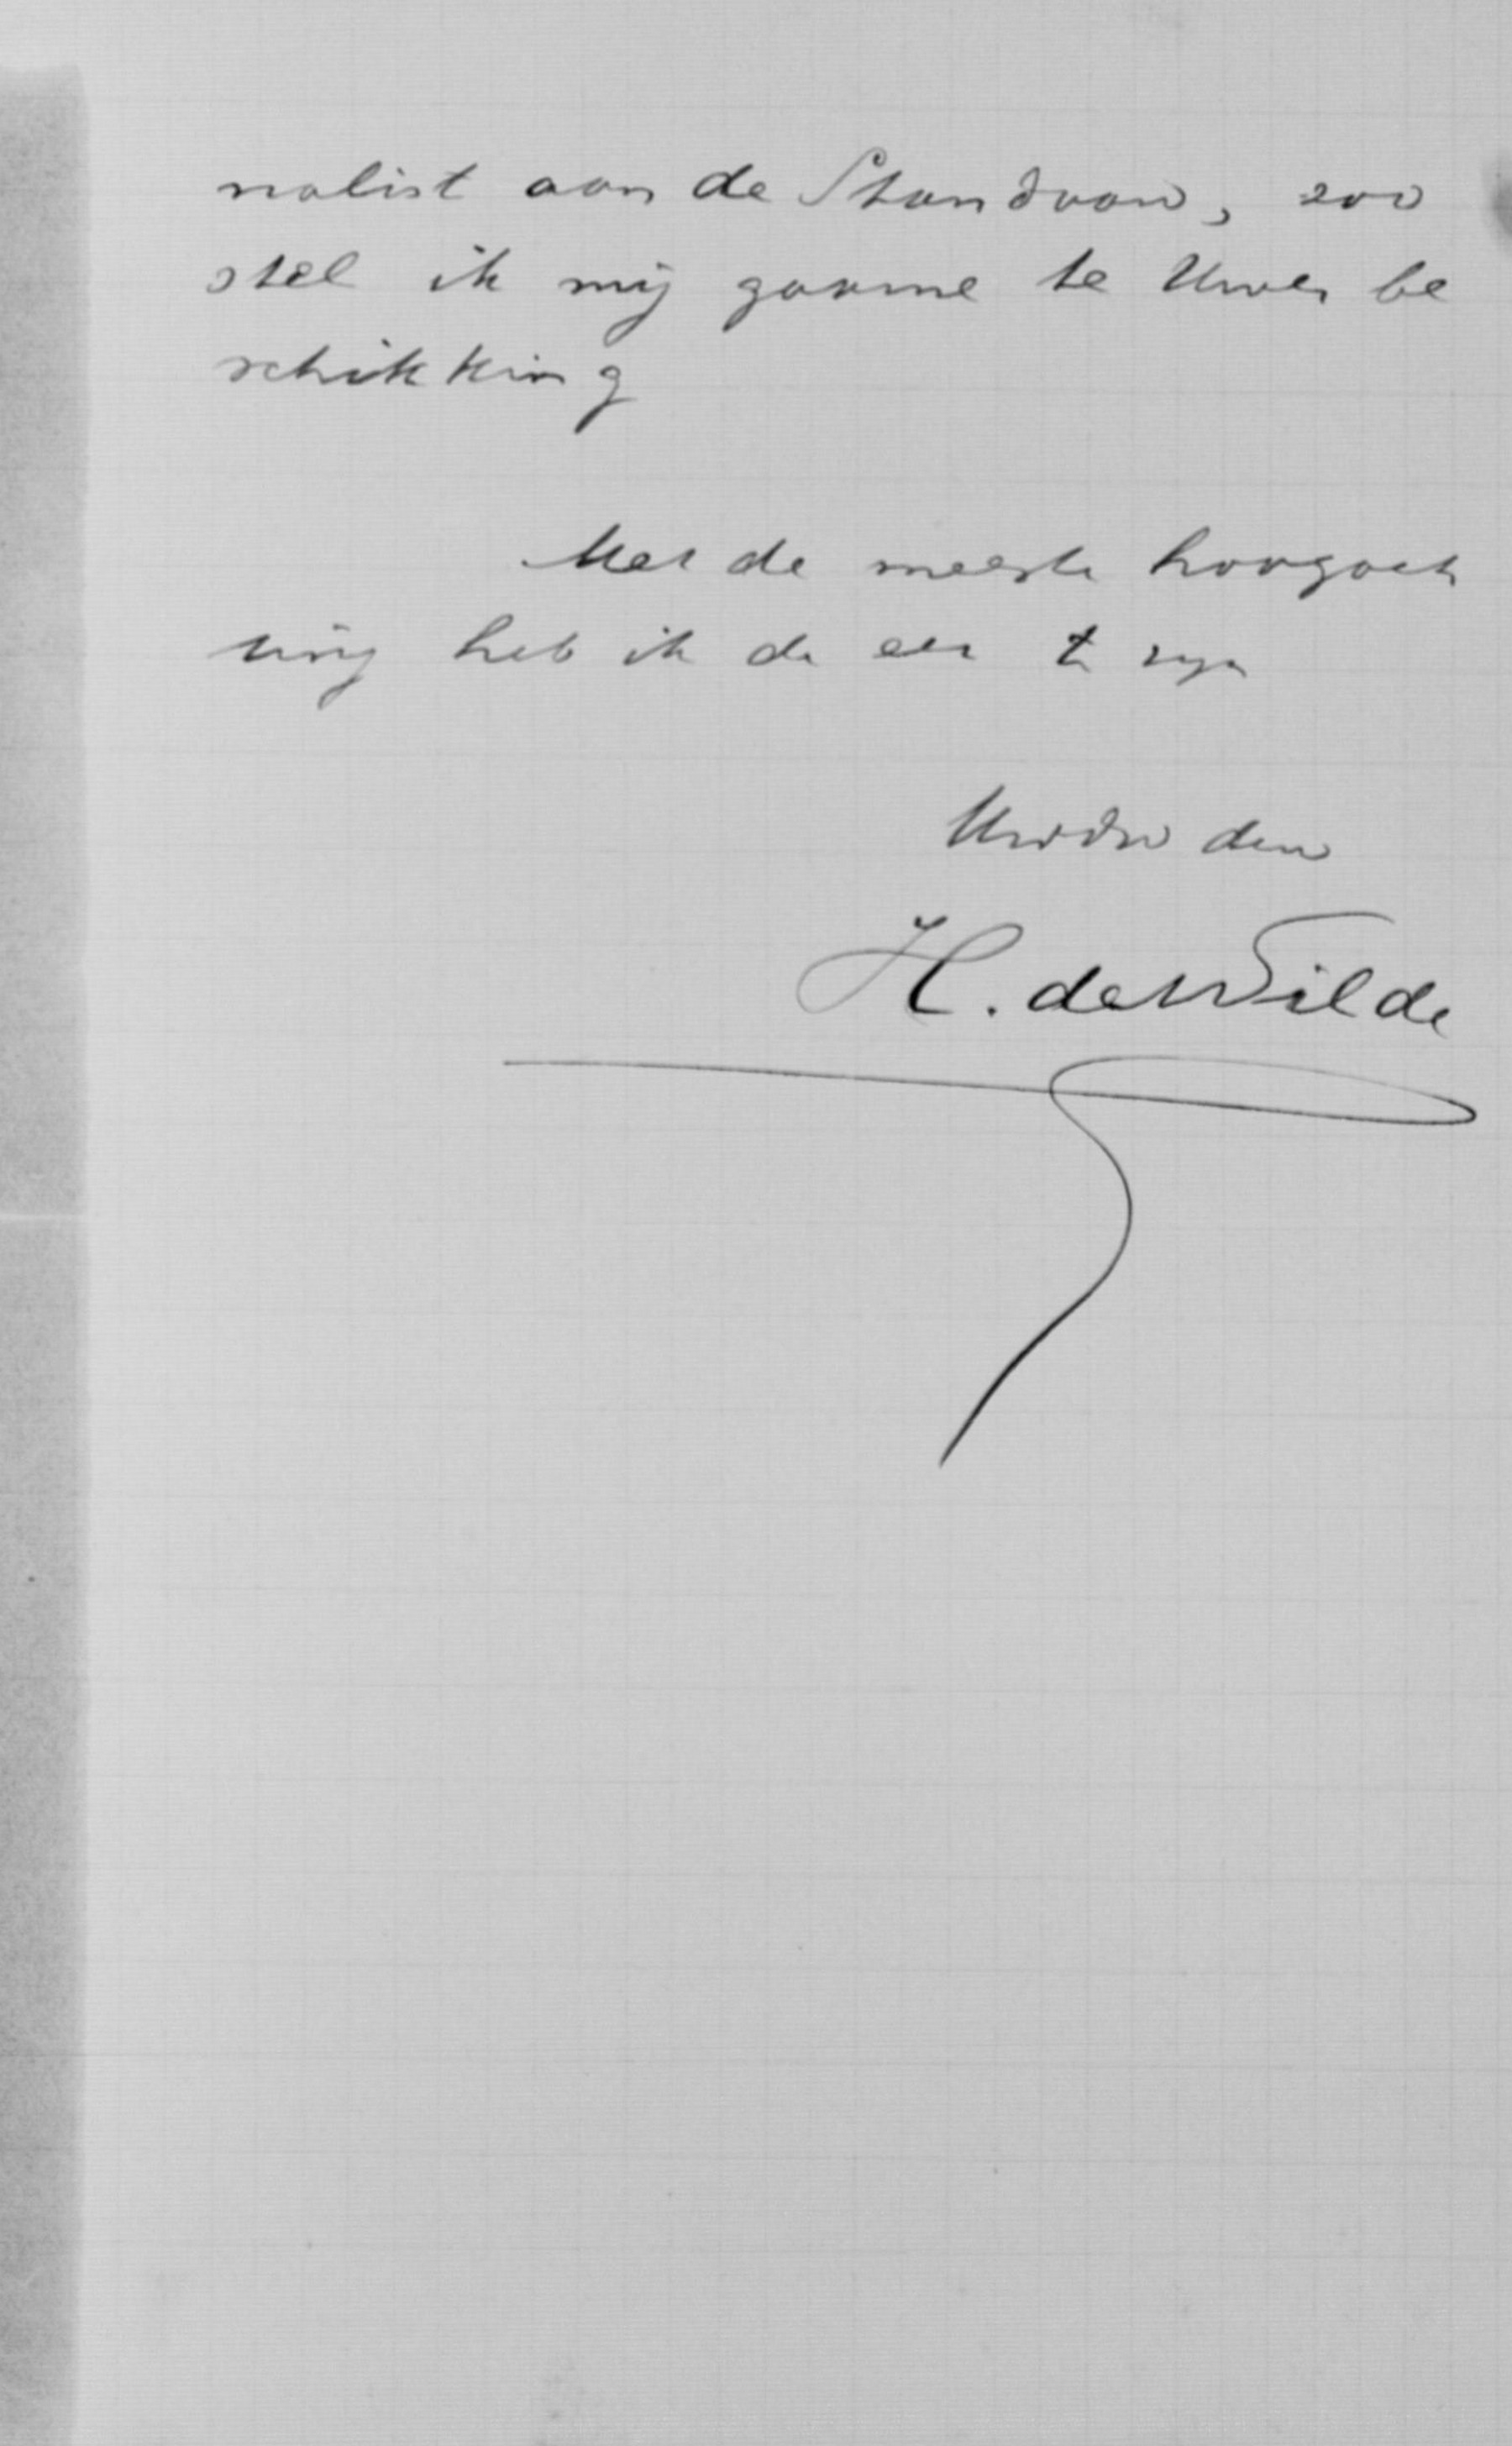 nalist aan de Standaard, zoo
stel ik mij gaarne te Uwer be
schikking
Met de meeste hoogach
ting heb ik de eer te zijn
Uwdw den
H. de Wilde